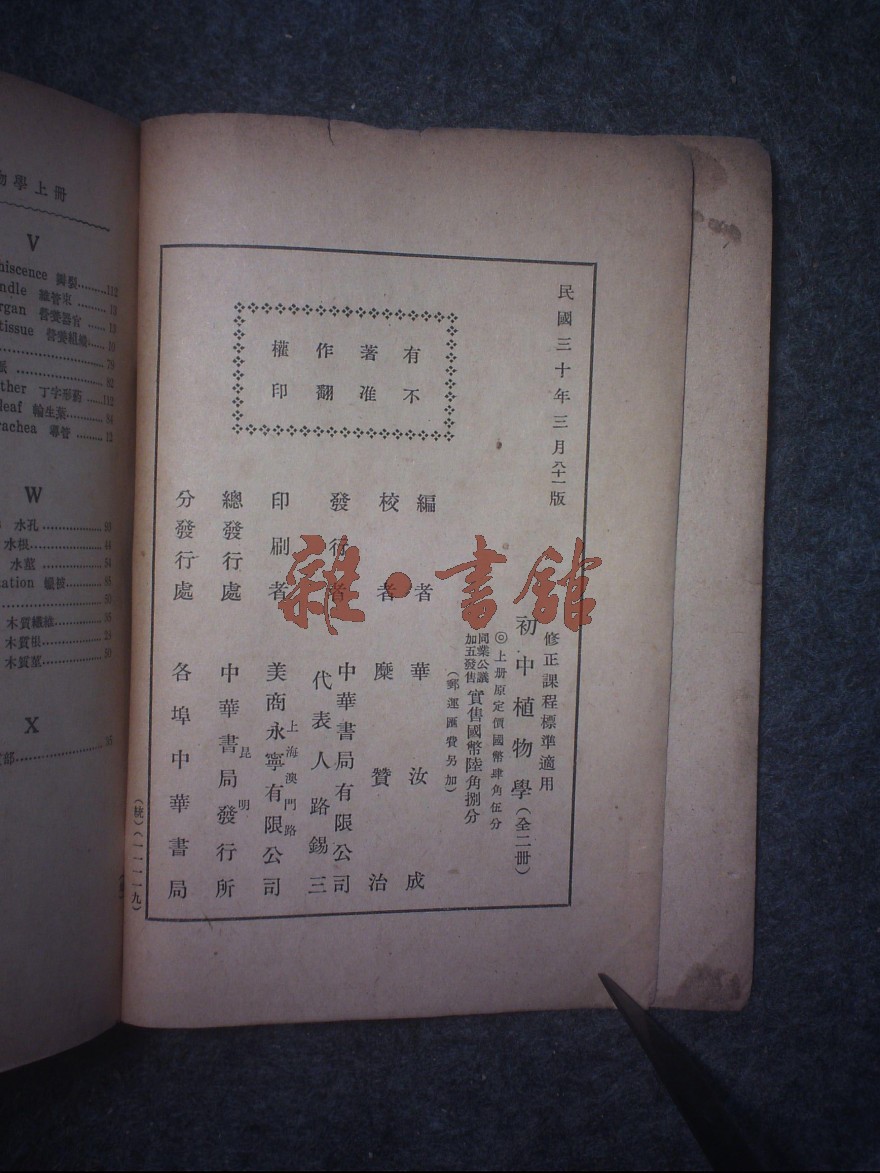 民國三十年三月六十一版
修正課程標準適用
初中植物學(全二冊)
◎上册原定價國幣肆角伍分
同業公議
加五發售
實售國幣陸角捌分
(郵運匯費另加)
有著作權
不准翻印
編者 華汝成
校者 糜贊治
發行者 中華書局有限公司
代表人路錫三
印刷者 上海澳門路
美商永寧有限公司
總發行處 昆明
中華書局發行所
分發行處 各埠中華書局
(統)(一一一一九)
雜·書館
物學上冊
V
niscence 裂……112
ndle 維管束……13
rgan 營養器官……13
tissue 營養組織……10
……79
……82
ther 丁字形葯……112
leaf 輪生葉……84
rachea 導管……12
W
水孔……60
水根……44
水莖……54
tation
木質根
木質莖
X